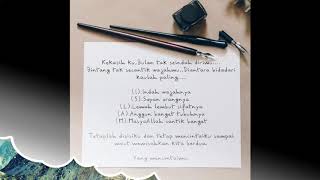 Kekasih ku..Bulan tak seindah dirimu...
Bintang tak secantik wajahmu..Diantara bidadari
kaulah paling....
(I).Indah wajahnya
(S).Sopan orangnya
(L).Lemah lembut sifatnya
(A).Anggun banget tubuhnya
(M).Masyaallah cantik banget
Tetaplah disisiku dan tetap mencintaiku sampai
maut memisahkan kita berdua
Yang mencintaimu